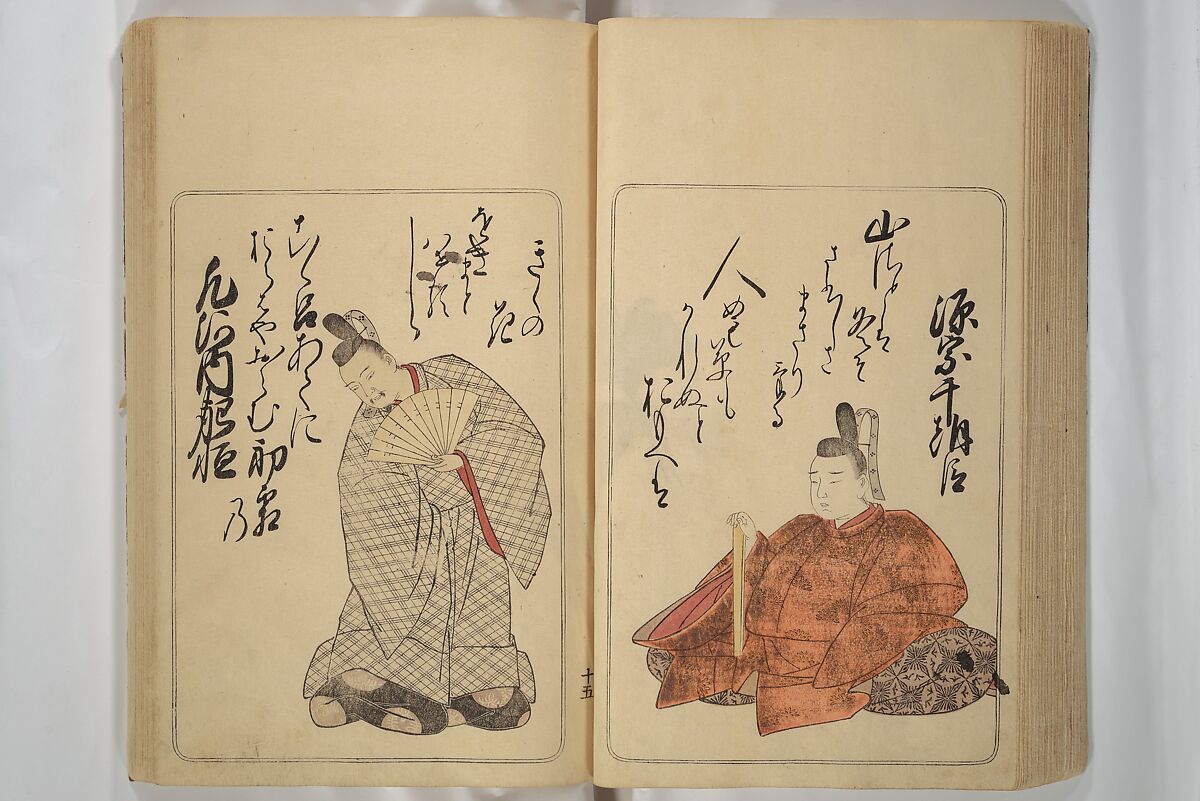 源宗于朝臣
山さとは
冬そ
さひしさ
まさりける
人めも草も
かれぬと
おもへは
凡河内躬恒
こゝ呂あてに
おらはやおらむ初霜
乃
をきまと
はせる
しら
きくの
花
十五